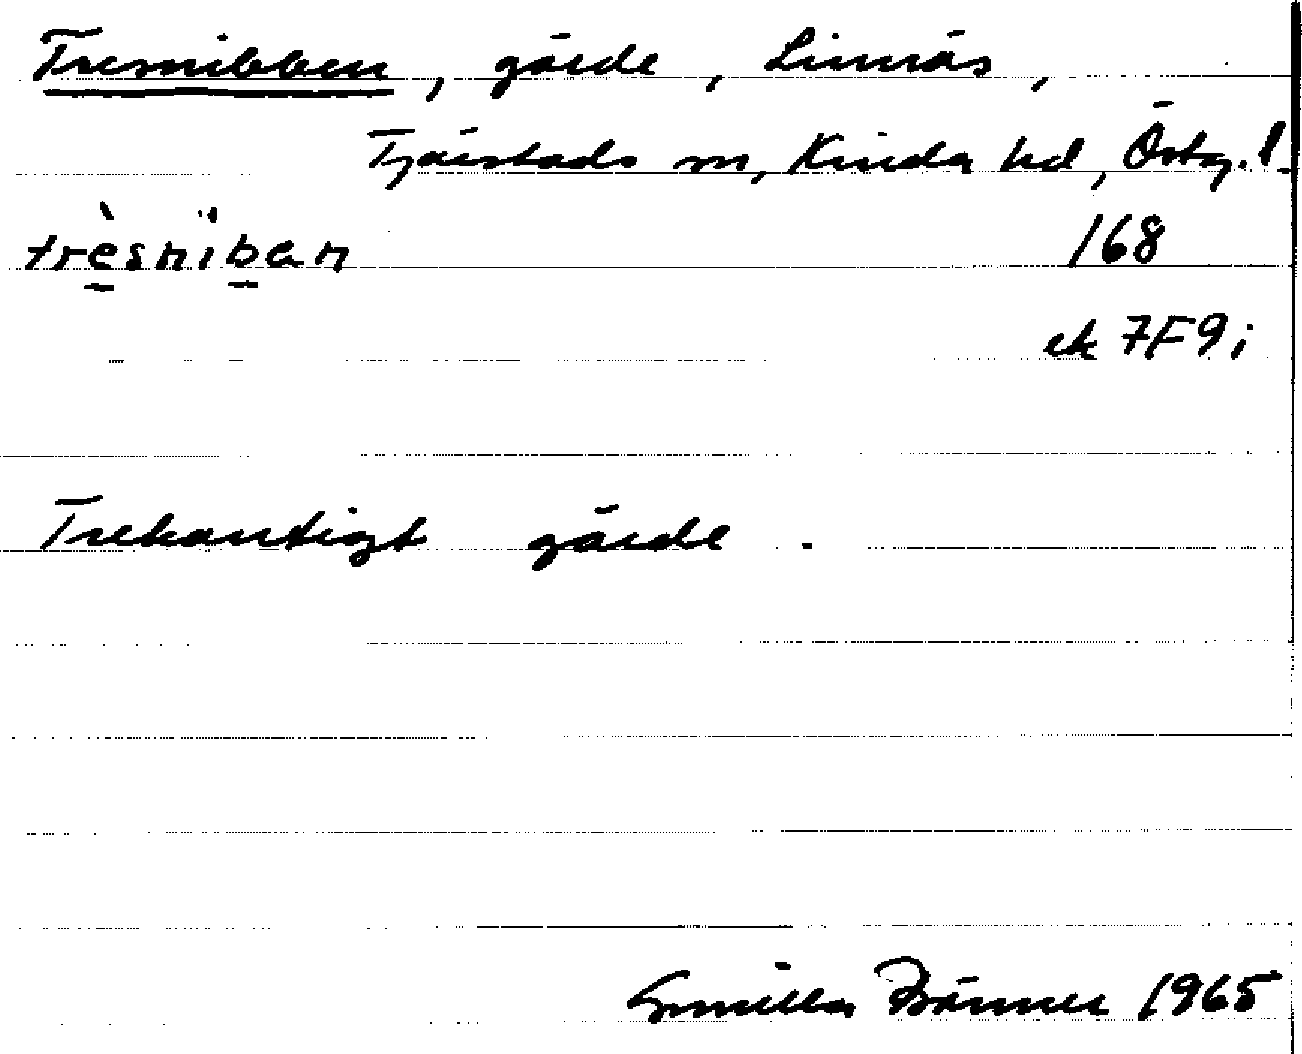 Tresnibben, gärde, Linnäs,
Tjärstads sn, Kinda hd, Östg. l.
trèsnìban 168
ek 7F9i
Trekantigt gärde.
Gunilla Brånner 1965